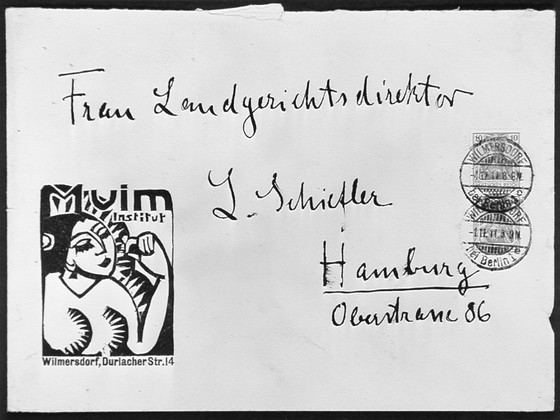 Frau Landgerichtsdirektor
L. Schiefler
Hamburg
Oberstrasse 86
MUIM
Institut
Wilmersdorf, Durlacher Str. 14
10 10
WILMERSDORF
(bei Berlin)
WILMERSDORF
(bei Berlin)